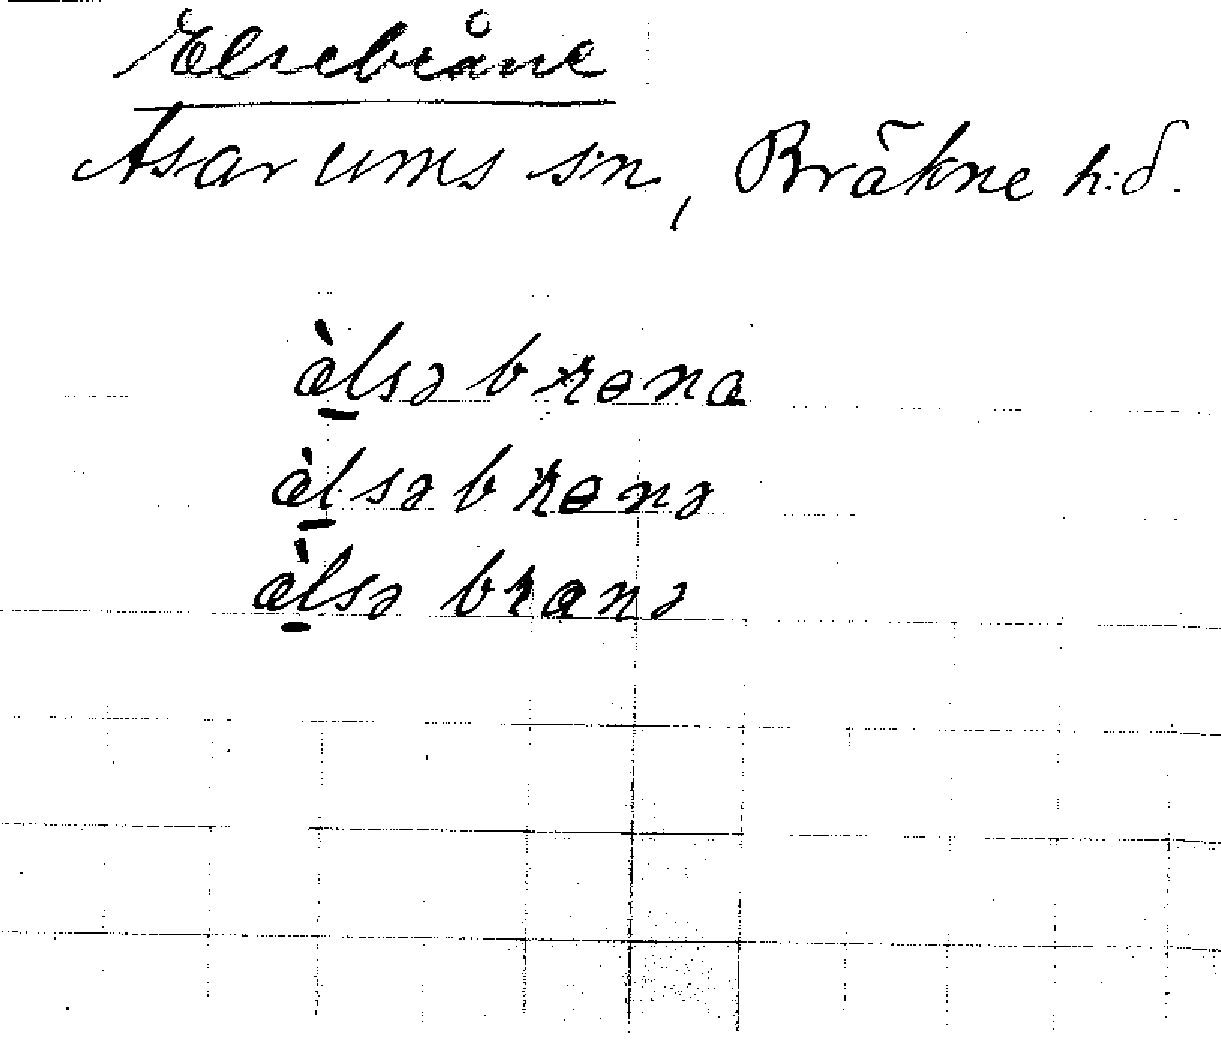 Elsebråne
Asarums sn, Bräkne h:d.
àlsə brɵna
àlsə brɵnə
àlsə branə